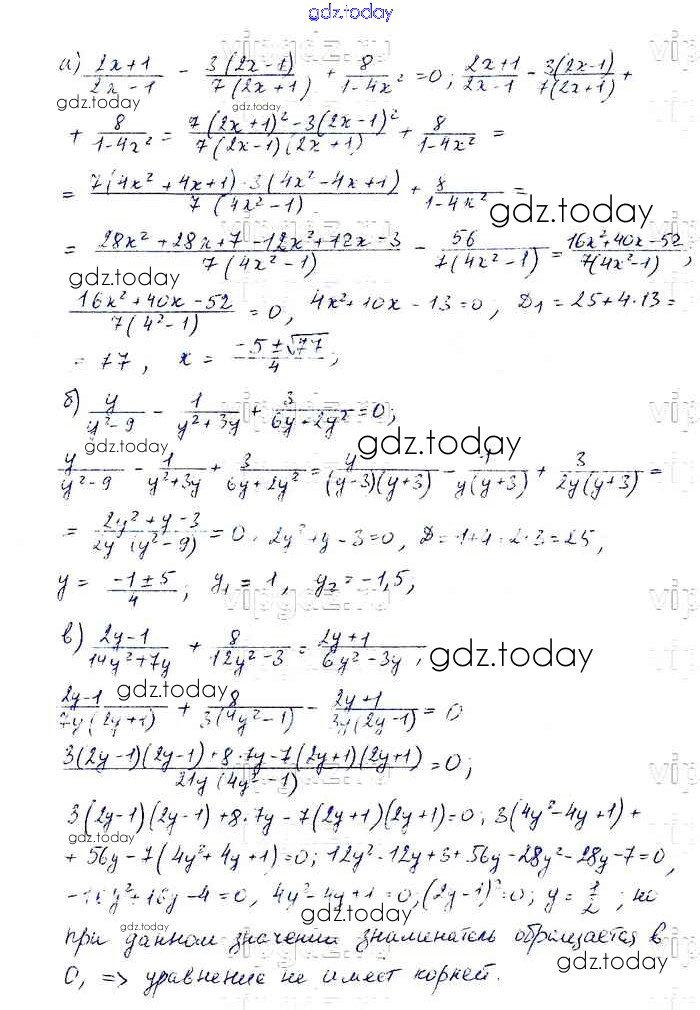 gdz.today
а) (2x+1)/(2x-1) - 3(2x-1)/7(2x+1) + 8/(1-4x²) = 0; (2x+1)/(2x-1) - 3(2x-1)/7(2x+1) +
+ 8/(1-4x²) = (7(2x+1)² - 3(2x-1)²)/(7(2x-1)(2x+1)) + 8/(1-4x²) =
= (7(4x² + 4x+1)·3(4x²-4x+1))/(7(4x²-1)) + 8/(1-4x²) =
= (28x² + 28x + 7 - 12x² + 12x - 3)/(7(4x²-1)) - 56/(7(4x²-1)) = (16x²+40x-52)/(7(4x²-1));
(16x² + 40x - 52)/(7(4²-1)) = 0, 4x² + 10x - 13 = 0, D₁ = 25 + 4·13 =
= 77, x = (-5 ± √77)/4;
б) y/(y²-9) - 1/(y²+3y) + 3/(6y-2y²) = 0;
y/(y²-9) - 1/(y²+3y) + 3/(6y+2y²) = y/((y-3)(y+3)) - 1/(y(y+3)) + 3/(2y(y+3)) =
= (2y² + y - 3)/(2y(y²-9)) = 0, 2y² + y - 3 = 0, D = 1+4·2·3 = 25,
y = (-1 ± 5)/4; y₁ = 1, y₂ = -1,5;
в) (2y-1)/(14y²+7y) + 8/(12y²-3) = (2y+1)/(6y²-3y);
(2y-1)/(7y(2y+1)) + 8/(3(4y²-1)) - (2y+1)/(3y(2y-1)) = 0
(3(2y-1)(2y-1)+8·7y-7(2y+1)(2y+1))/(21y(4y²-1)) = 0;
3(2y-1)(2y-1)+8·7y-7(2y+1)(2y+1)=0; 3(4y²-4y+1)+
+ 56y - 7(4y²+4y+1)=0; 12y²-12y+3+56y-28y²-28y-7=0,
-16y²+16y-4=0, 4y²-4y+1=0, (2y-1)²=0; y = 1/2; но
при данном значении знаменатель обращается в
0, => уравнение не имеет корней.